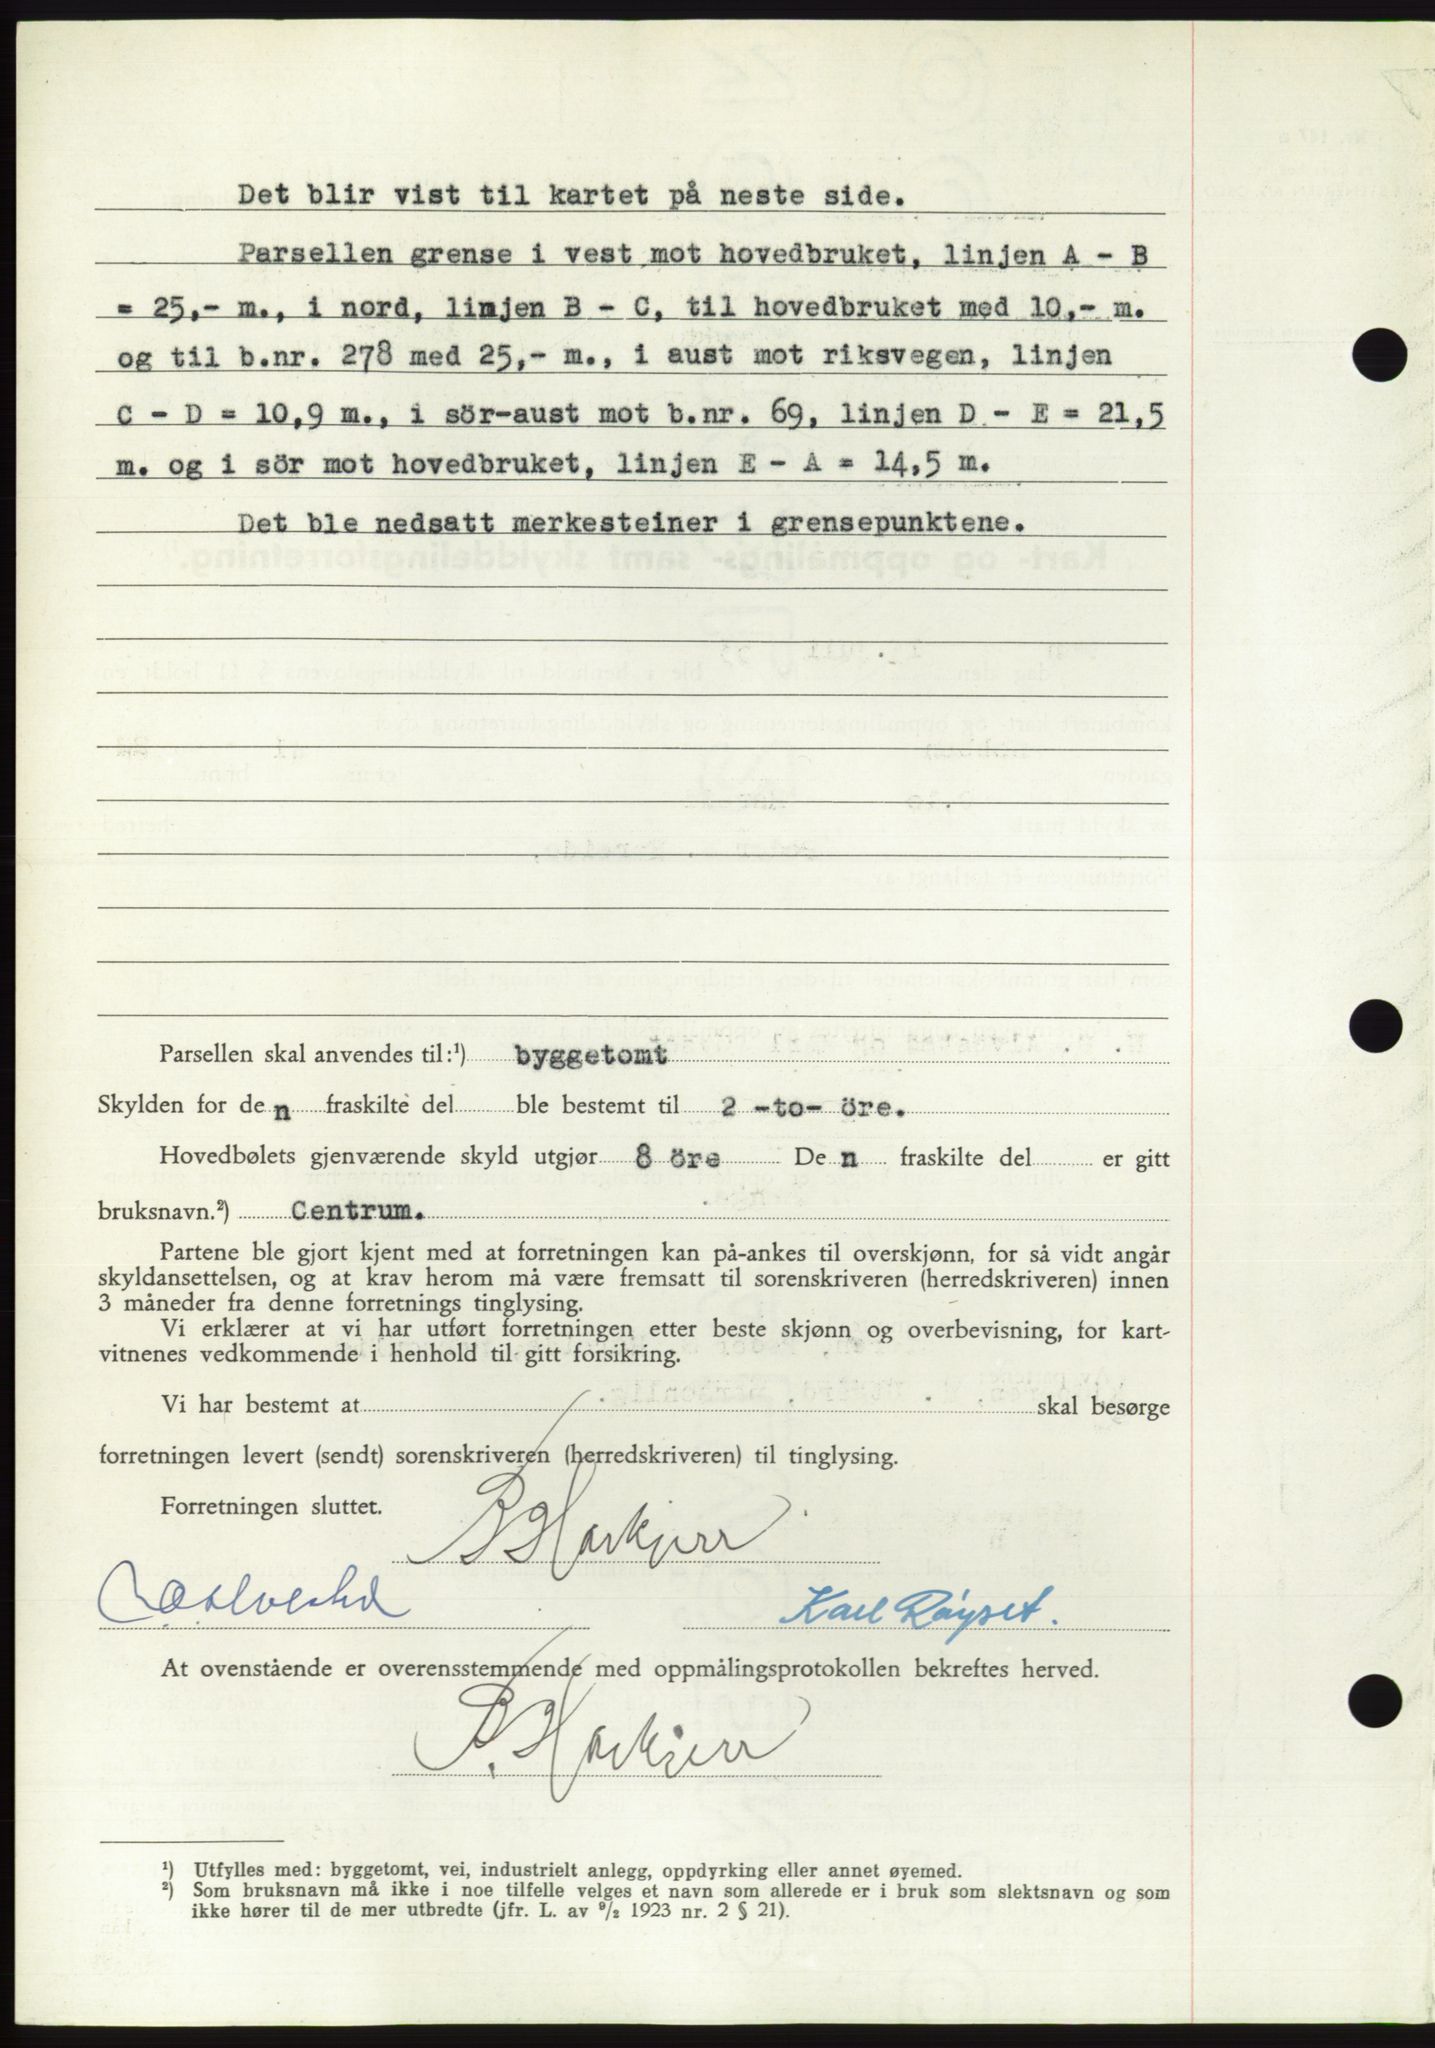 Det blir vist til kartet på neste side.
Parsellen grense i vest mot hovedbruket, linjen A - B
= 25,- m., i nord, linjen B - C, til hovedbruket med 10,- m.
og til b.nr. 278 med 25,- m., i aust mot riksvegen, linjen
C - D = 10,9 m., i sör-aust mot b.nr. 69, linjen D - E = 21,5
m. og i sör mot hovedbruket, linjen E - A = 14,5 m.
Det ble nedsatt merkesteiner i grensepunktene.
Parsellen skal anvendes til:¹) byggetomt
Skylden for den fraskilte del ble bestemt til 2 -to- öre.
Hovedbølets gjenværende skyld utgjør 8 öre Den fraskilte del er gitt
bruksnavn.²) Centrum.
Partene ble gjort kjent med at forretningen kan på-ankes til overskjønn, for så vidt angår
skyldansettelsen, og at krav herom må være fremsatt til sorenskriveren (herredskriveren) innen
3 måneder fra denne forretnings tinglysing.
Vi erklærer at vi har utført forretningen etter beste skjønn og overbevisning, for kart-
vitnenes vedkommende i henhold til gitt forsikring.
Vi har bestemt at skal besørge
forretningen levert (sendt) sorenskriveren (herredskriveren) til tinglysing.
Forretningen sluttet.
Karl Røyset.
At ovenstående er overensstemmende med oppmålingsprotokollen bekreftes herved.
¹) Utfylles med: byggetomt, vei, industrielt anlegg, oppdyrking eller annet øyemed.
²) Som bruksnavn må ikke i noe tilfelle velges et navn som allerede er i bruk som slektsnavn og som
ikke hører til de mer utbredte (jfr. L. av ⁹/₂ 1923 nr. 2 § 21).